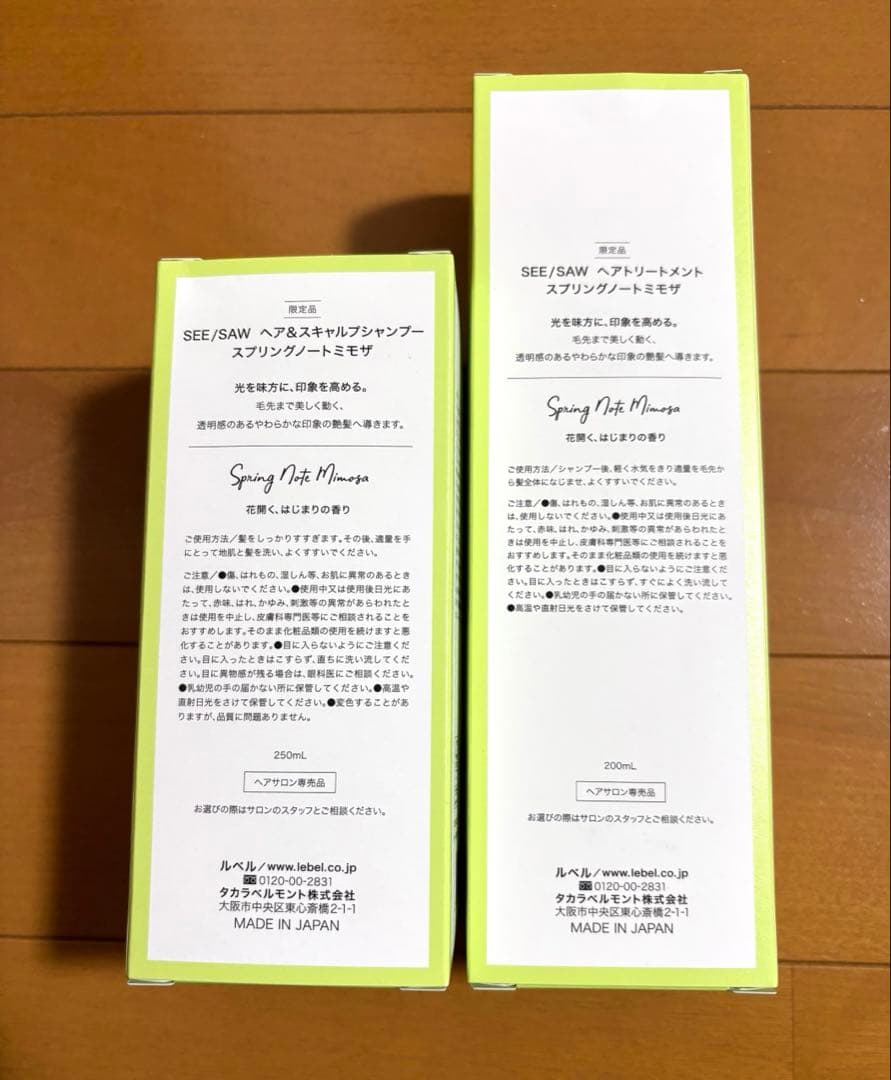 限定品
SEE/SAW ヘア&スキャルプシャンプー
スプリングノートミモザ
光を味方に、印象を高める。
毛先まで美しく動く、
透明感のあるやわらかな印象の艶髪へ導きます。
Spring Note Mimosa
花開く、はじまりの香り
ご使用方法/髪をしっかりすすぎます。その後、適量を手
にとって地肌と髪を洗い、よくすすいでください。
ご注意/●傷、はれもの、湿しん等、お肌に異常のあるとき
は、使用しないでください。●使用中又は使用後日光にあ
たって、赤味、はれ、かゆみ、刺激等の異常があらわれたと
きは使用を中止し、皮膚科専門医等にご相談されることを
おすすめします。そのまま化粧品類の使用を続けますと悪
化することがあります。●目に入らないようにご注意くだ
さい。目に入ったときはこすらず、直ちに洗い流してくだ
さい。目に異物感が残る場合は、眼科医にご相談ください。
●乳幼児の手の届かない所に保管してください。●高温や
直射日光をさけて保管してください。●変色することがあ
りますが、品質に問題ありません。
250mL
ヘアサロン専売品
お選びの際はサロンのスタッフとご相談ください。
ルベル/www.lebel.co.jp
0120-00-2831
タカラベルモント株式会社
大阪市中央区東心斎橋2-1-1
MADE IN JAPAN
限定品
SEE/SAW ヘアトリートメント
スプリングノートミモザ
光を味方に、印象を高める。
毛先まで美しく動く、
透明感のあるやわらかな印象の艶髪へ導きます。
Spring Note Mimosa
花開く、はじまりの香り
ご使用方法/シャンプー後、軽く水気をきり適量を毛先か
ら髪全体になじませ、よくすすいでください。
ご注意/●傷、はれもの、湿しん等、お肌に異常のあるとき
は、使用しないでください。●使用中又は使用後日光にあ
たって、赤味、はれ、かゆみ、刺激等の異常があらわれたと
きは使用を中止し、皮膚科専門医等にご相談されることを
おすすめします。そのまま化粧品類の使用を続けますと悪
化することがあります。●目に入らないようにご注意くだ
さい。目に入ったときはこすらず、すぐによく洗い流して
ください。●乳幼児の手の届かない所に保管してください。
●高温や直射日光をさけて保管してください。
200mL
ヘアサロン専売品
お選びの際はサロンのスタッフとご相談ください。
ルベル/www.lebel.co.jp
0120-00-2831
タカラベルモント株式会社
大阪市中央区東心斎橋2-1-1
MADE IN JAPAN